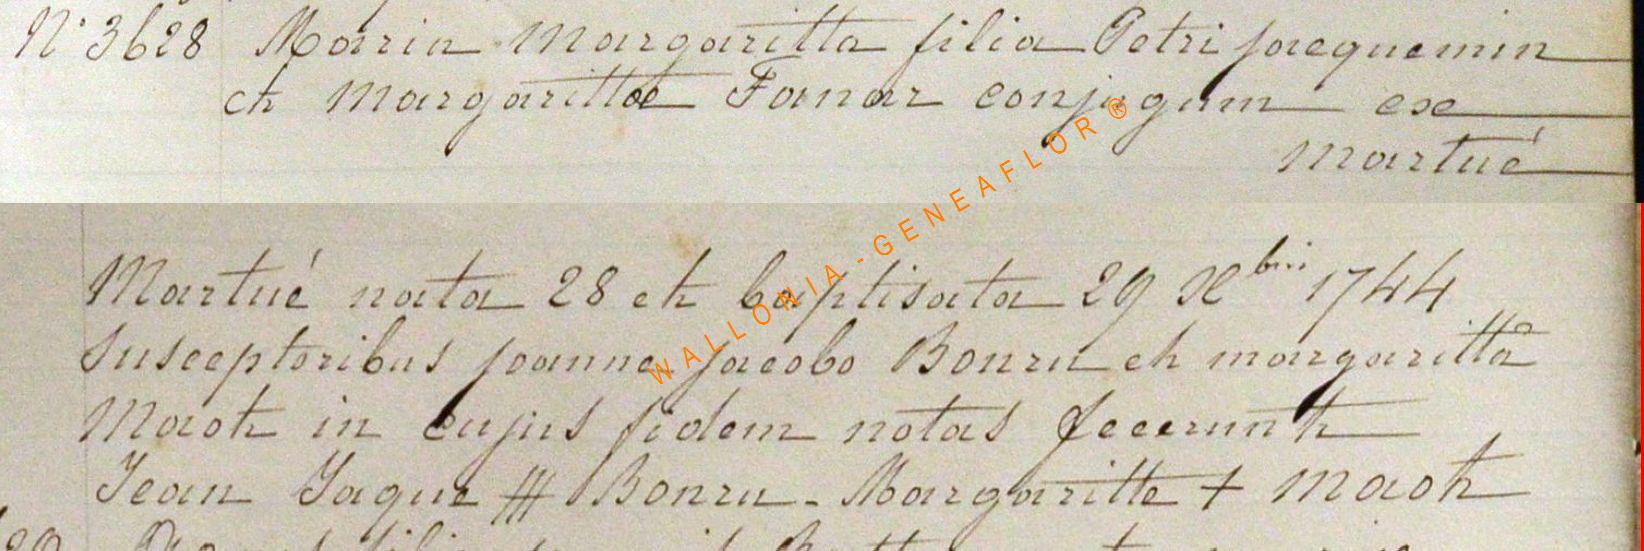 N° 3628 Maria Margaritta filia Petri jacquemin
et Margarittae Fanar conjugum ex
Martué
Martué nata 28 et baptisata 29 Xbris 1744
Susceptoribus joanne jacobo Bonru et margaritta
Maot in cujus fidem notas fecerunt
Jean Jaque # Bonru - Margaritte + Maot
WALLONIA - GENEAFLOR ®